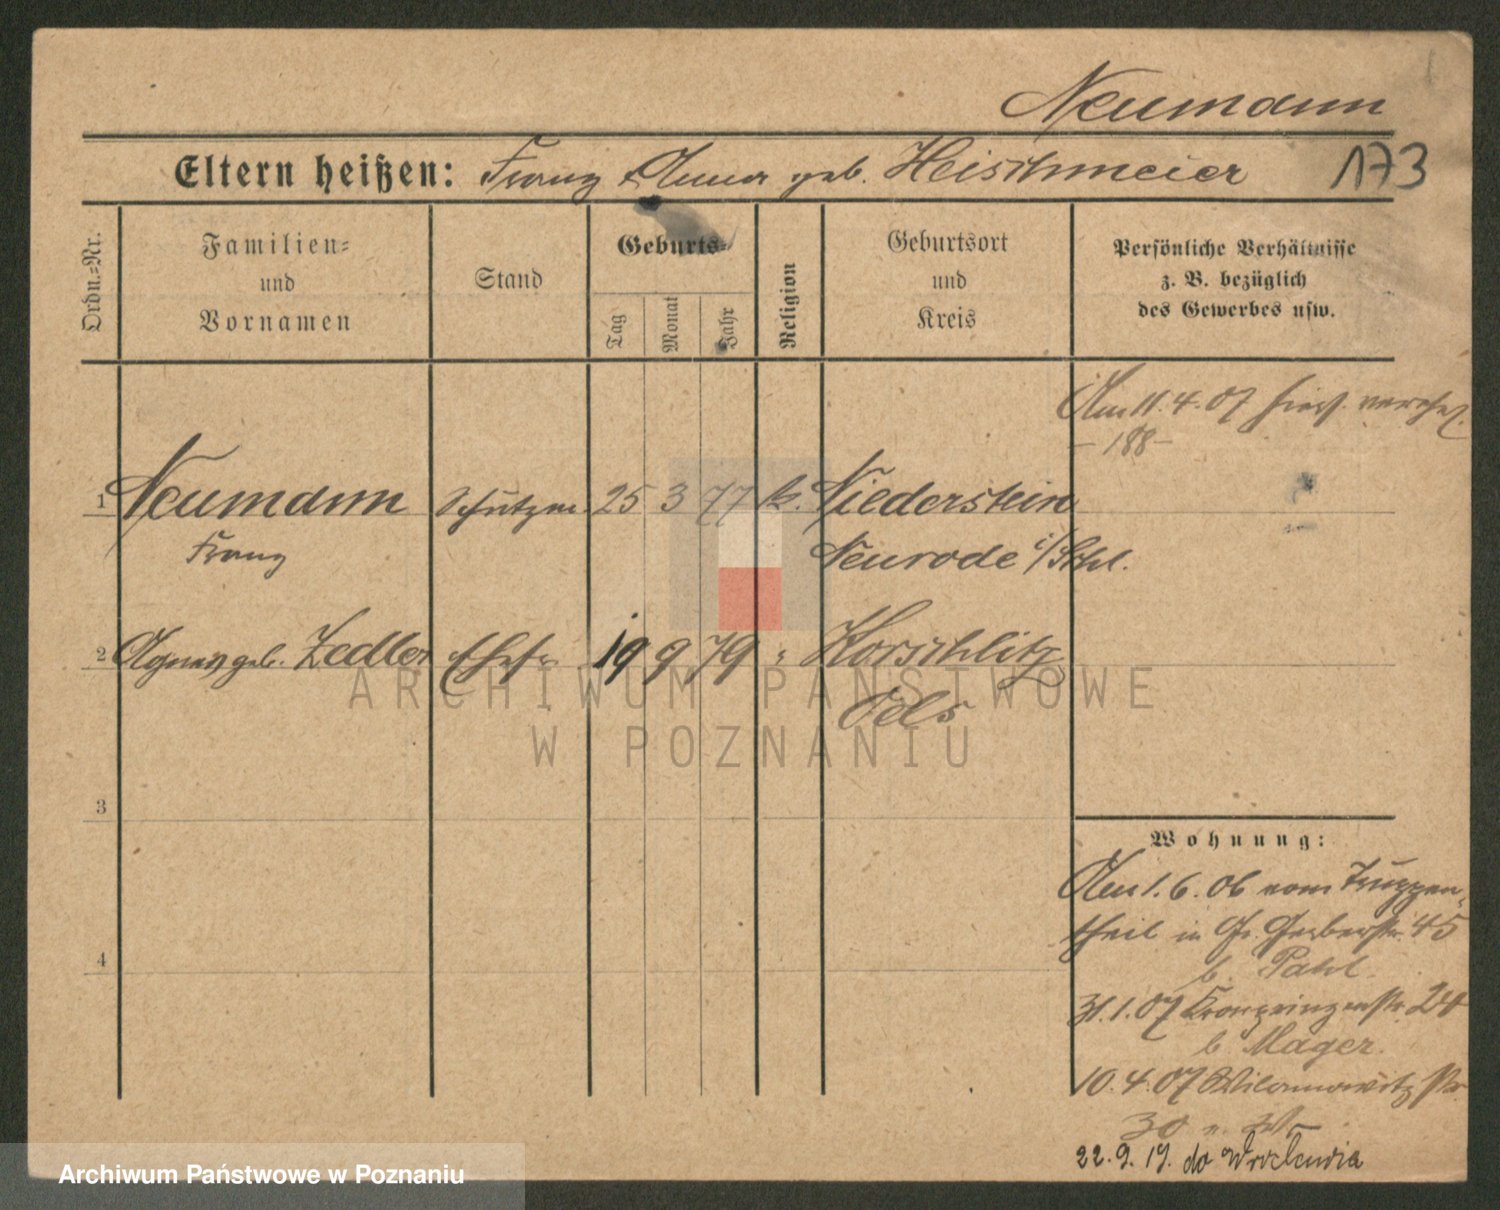 Neumann
Eltern heißen: Franz & Anna geb. Heischmeier 173
Ordn.=Nr.
Familien=
und
Vornamen
Stand
Geburts=
Tag
Monat
Jahr
Religion
Geburtsort
und
Kreis
Persönliche Verhältnisse
z. B. bezüglich
des Gewerbes usw.
Am 11.4.07 hier verehel.
- 188 -
1 Neumann Schutzm. 25 3 77 k. Niederstein
Franz Neurode i/Schl.
2 Agnes geb. Zedler Ehefr. 19 9 79 " Korschlitz
Oels
ARCHIWUM PAŃSTWOWE
W POZNANIU
3
4
Wohnung:
Am 1.6.06 vom Truppen-
theil in Gr. Gerberstr. 45
b. Pahl
31.1.07 Kronprinzenstr. 24
b Mager.
10.4.07 Wilamowitzstr.
30
22.9.19. do Wrocławia
Archiwum Państwowe w Poznaniu